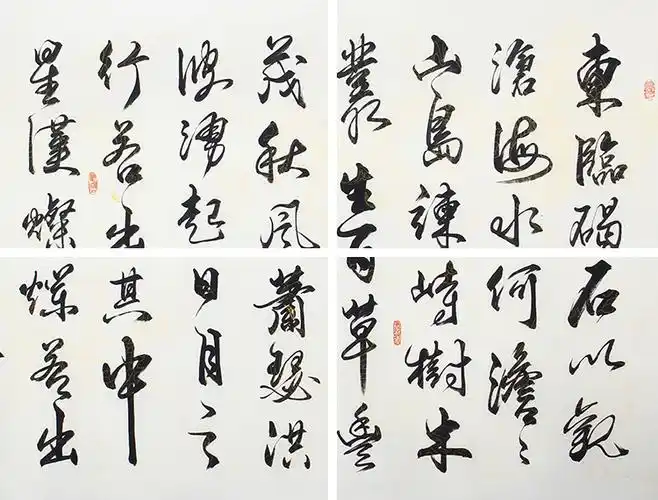 東臨碣石以觀
滄海水何澹々
山島竦峙樹木
叢生百草豐
茂秋風蕭瑟洪
波湧起日月之
行若出其中
星漢燦爛若出